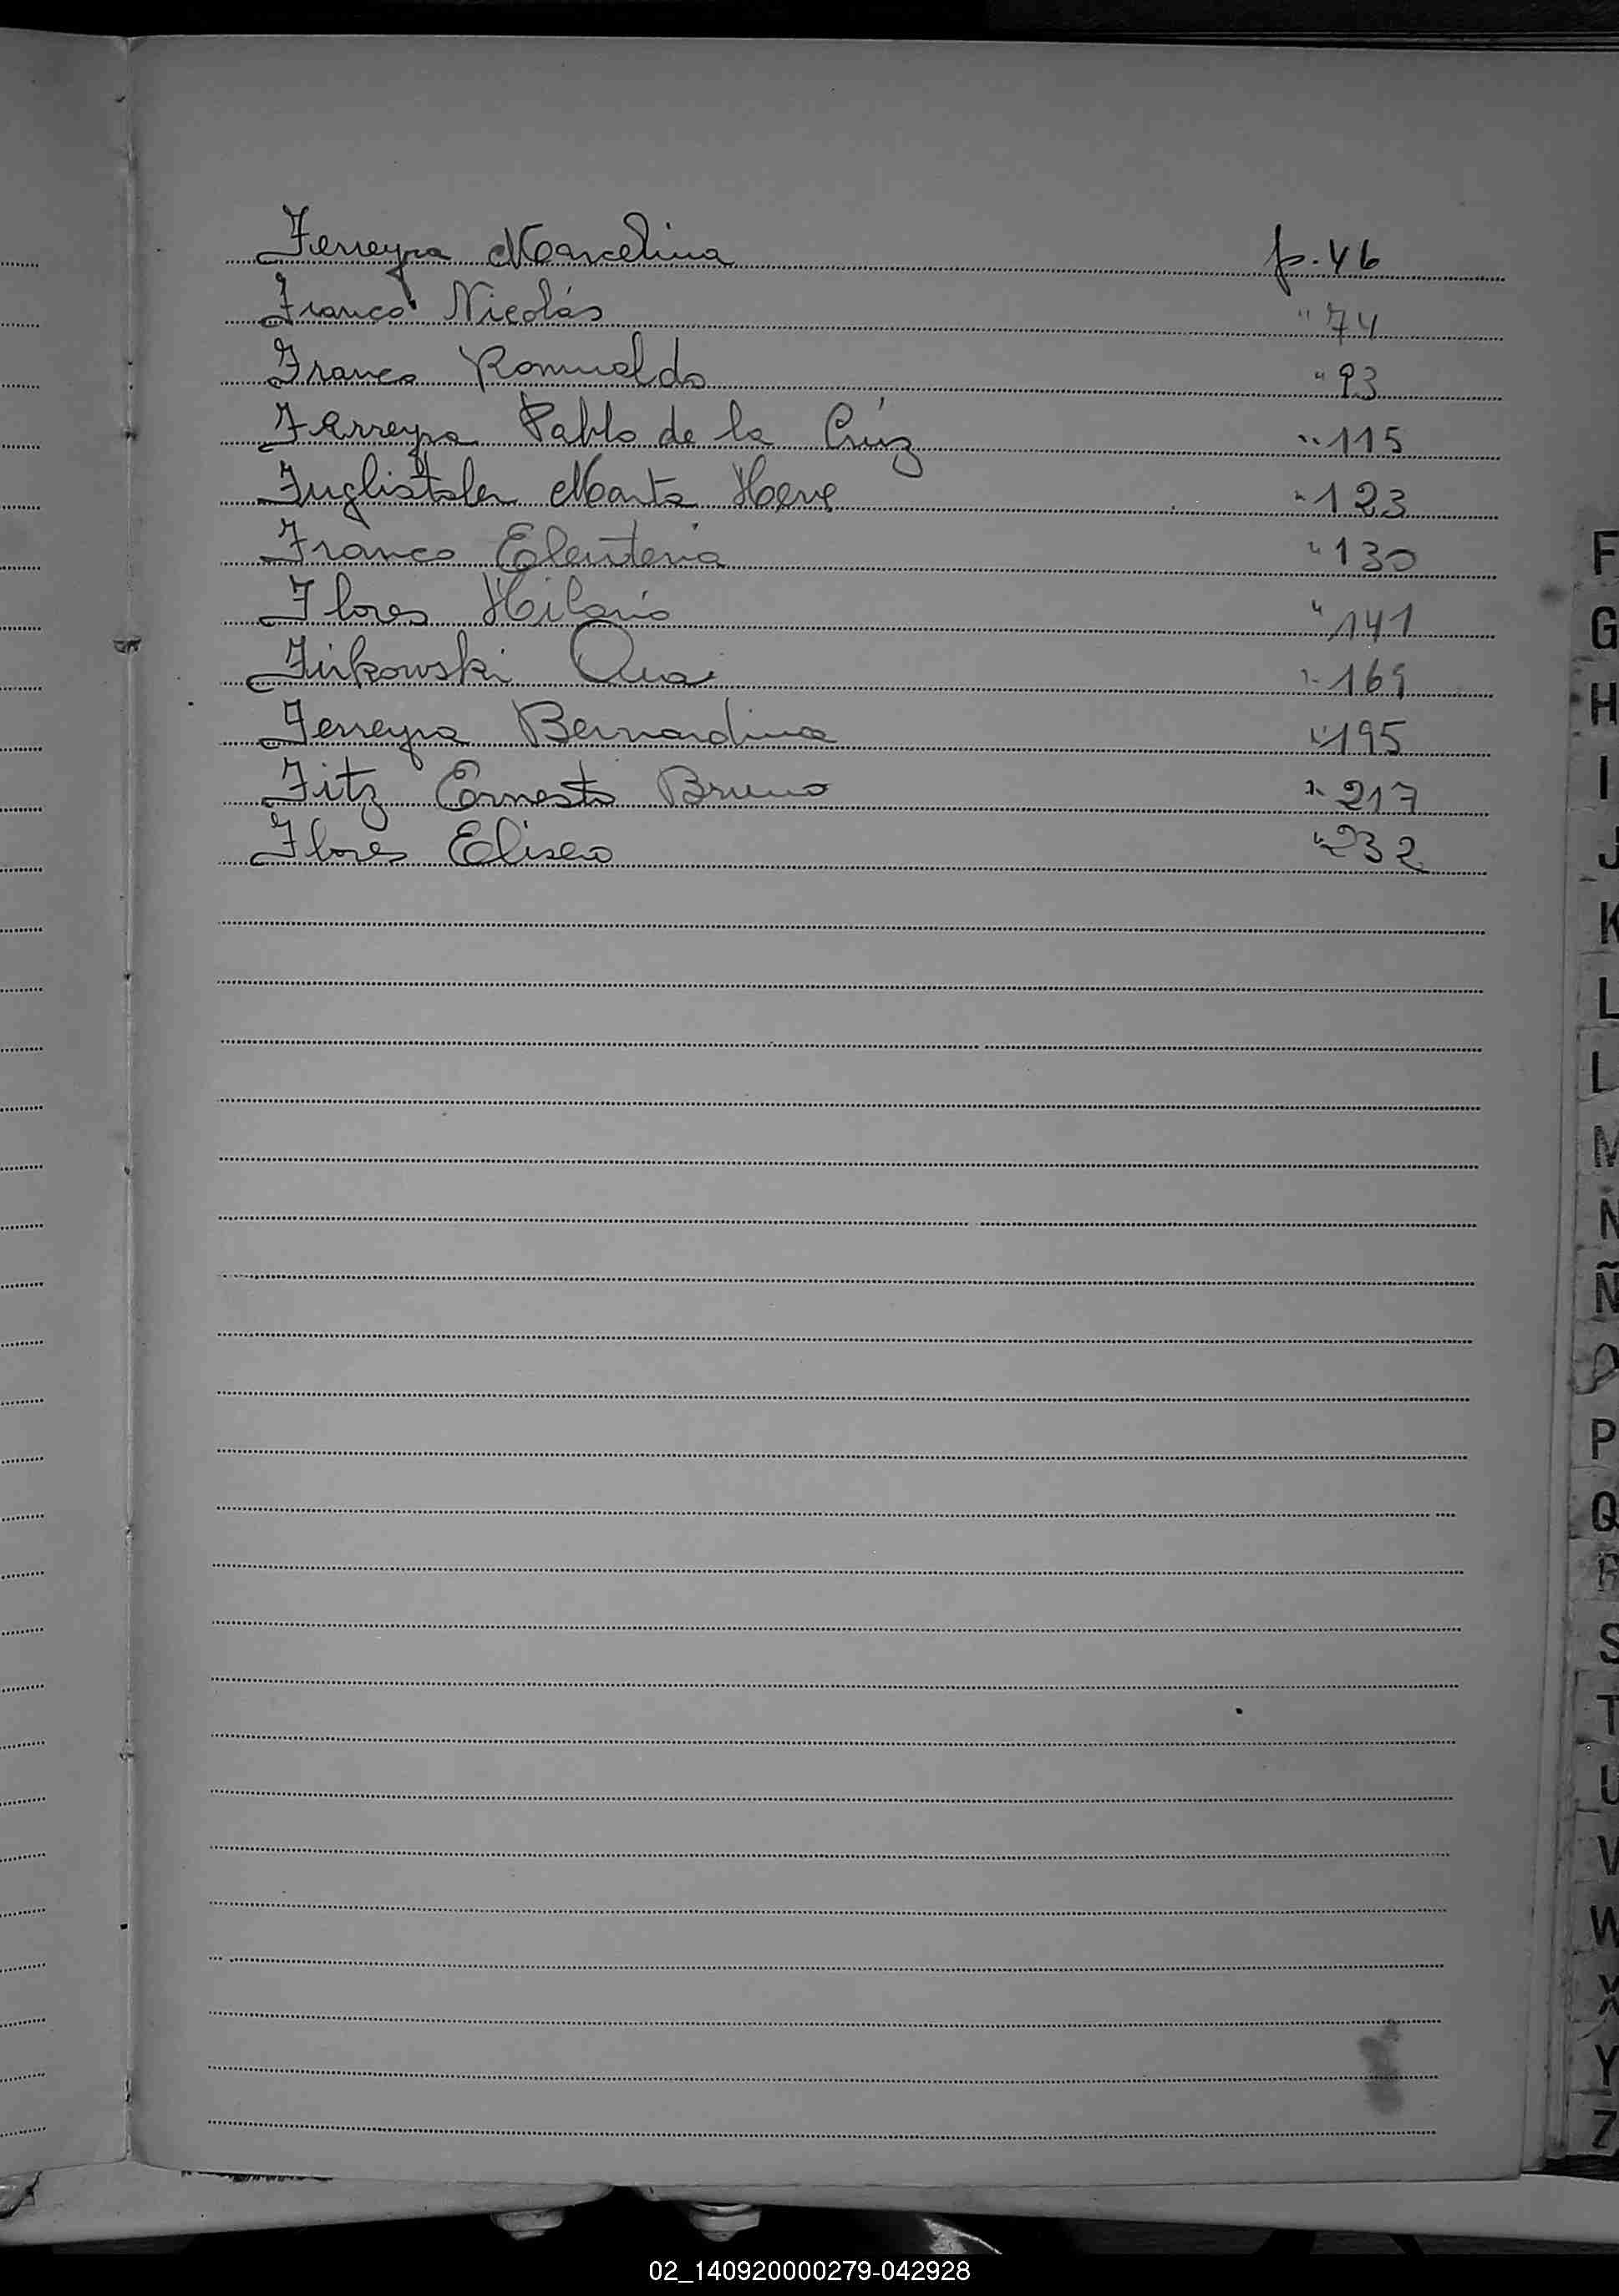 Ferreyra Marcelina p. 46
Franco Nicolás " 74
Franco Romualdo " 93
Ferreyra Pablo de la Crúz " 115
Fuglistaler Marta " 123
Franco Eleuteria " 130
Flores Hilario " 141
Firkowski Ana " 169
Ferreyra Bernardina " 195
Fitz Ernesto Bruno " 217
Flores Eliseo " 232
F
G
H
I
J
K
L
L
M
N
Ñ
O
P
Q
R
S
T
U
V
W
X
Y
Z
02_140920000279-042928